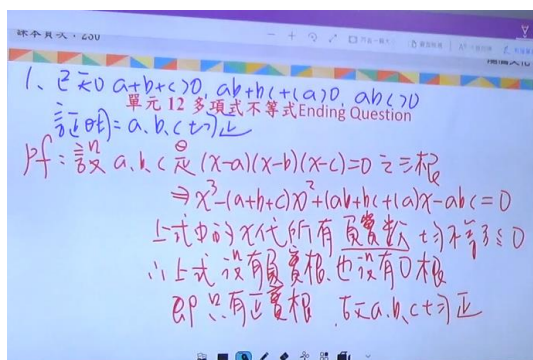 課本頁次：230
1、已知 a+b+c>0, ab+bc+ca>0, abc>0
單元12多項式不等式Ending Question
證明=a、b、c均正
pf：設a、b、c是(x-a)(x-b)(x-c)=0之三根
⇒x³-(a+b+c)x²+(ab+bc+ca)x-abc=0
上式中的x代所有負實數均不等於0
∴上式沒有負實根也沒有0根
即只有正實根，故a、b、c均正